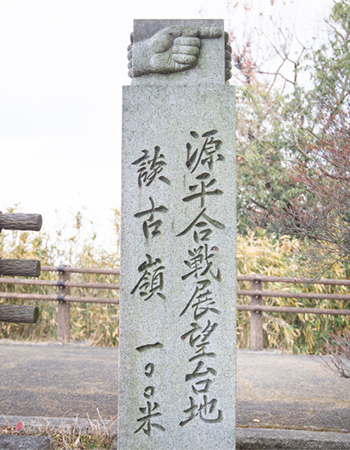 源平合戦展望台地
談古嶺 一〇〇米